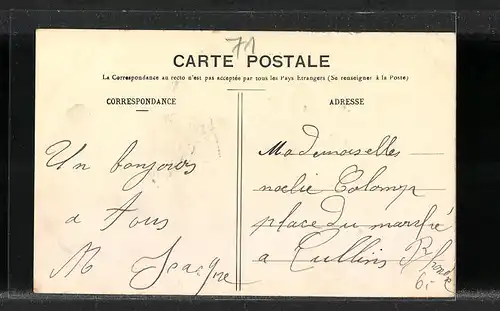 71
CARTE POSTALE
La Correspondance au recto n'est pas acceptée par tous les Pays Étrangers (Se renseigner à la Poste)
CORRESPONDANCE
Un bonjours
a tous
M
ADRESSE
Mademoiselles
noelie
place du marché
a Cullins Rhone